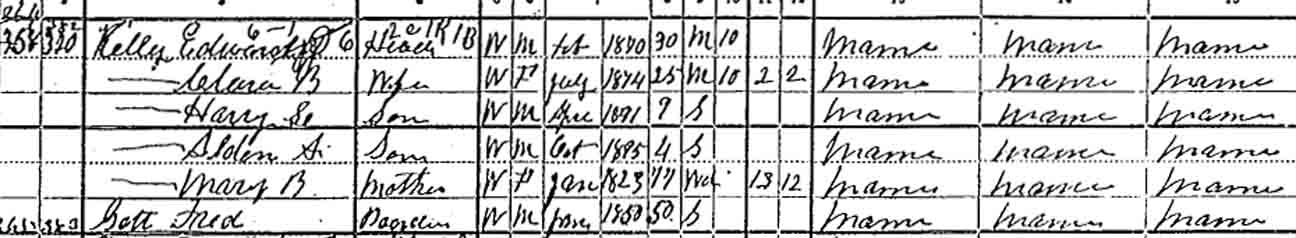 Kelly Head W M 1870 30 M 10 Maine Maine Maine
Clara B Wife W F July 1874 25 M 10 2 2 Maine Maine Maine
Harry Son W M 1891 9 S Maine Maine Maine
Alden Son W M Oct 1895 4 S Maine Maine Maine
Mary B. Mother W F Jan 1823 77 Wd 13 12 Maine Maine Maine
Gott Fred Boarder W M 1850 50 S Maine Maine Maine